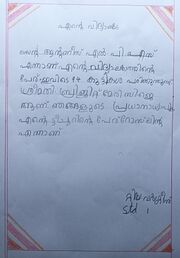 എന്റെ വിദ്യാലയം
സെന്റ് ആന്റണീസ് എൽ പി എസ്
എന്നാണ് എന്റെ വിദ്യാലയത്തിന്റെ
പേര് ഇവിടെ 94 കുട്ടികൾ പഠിക്കുന്നുണ്ട്
ശ്രീമതി
ആണ് ഞങ്ങളുടെ പ്രധാനാധ്യാപിക
എന്റെ ടീച്ചറിന്റെ പേര് റോസ്‌ലിൻ
എന്നാണ്
Std 1